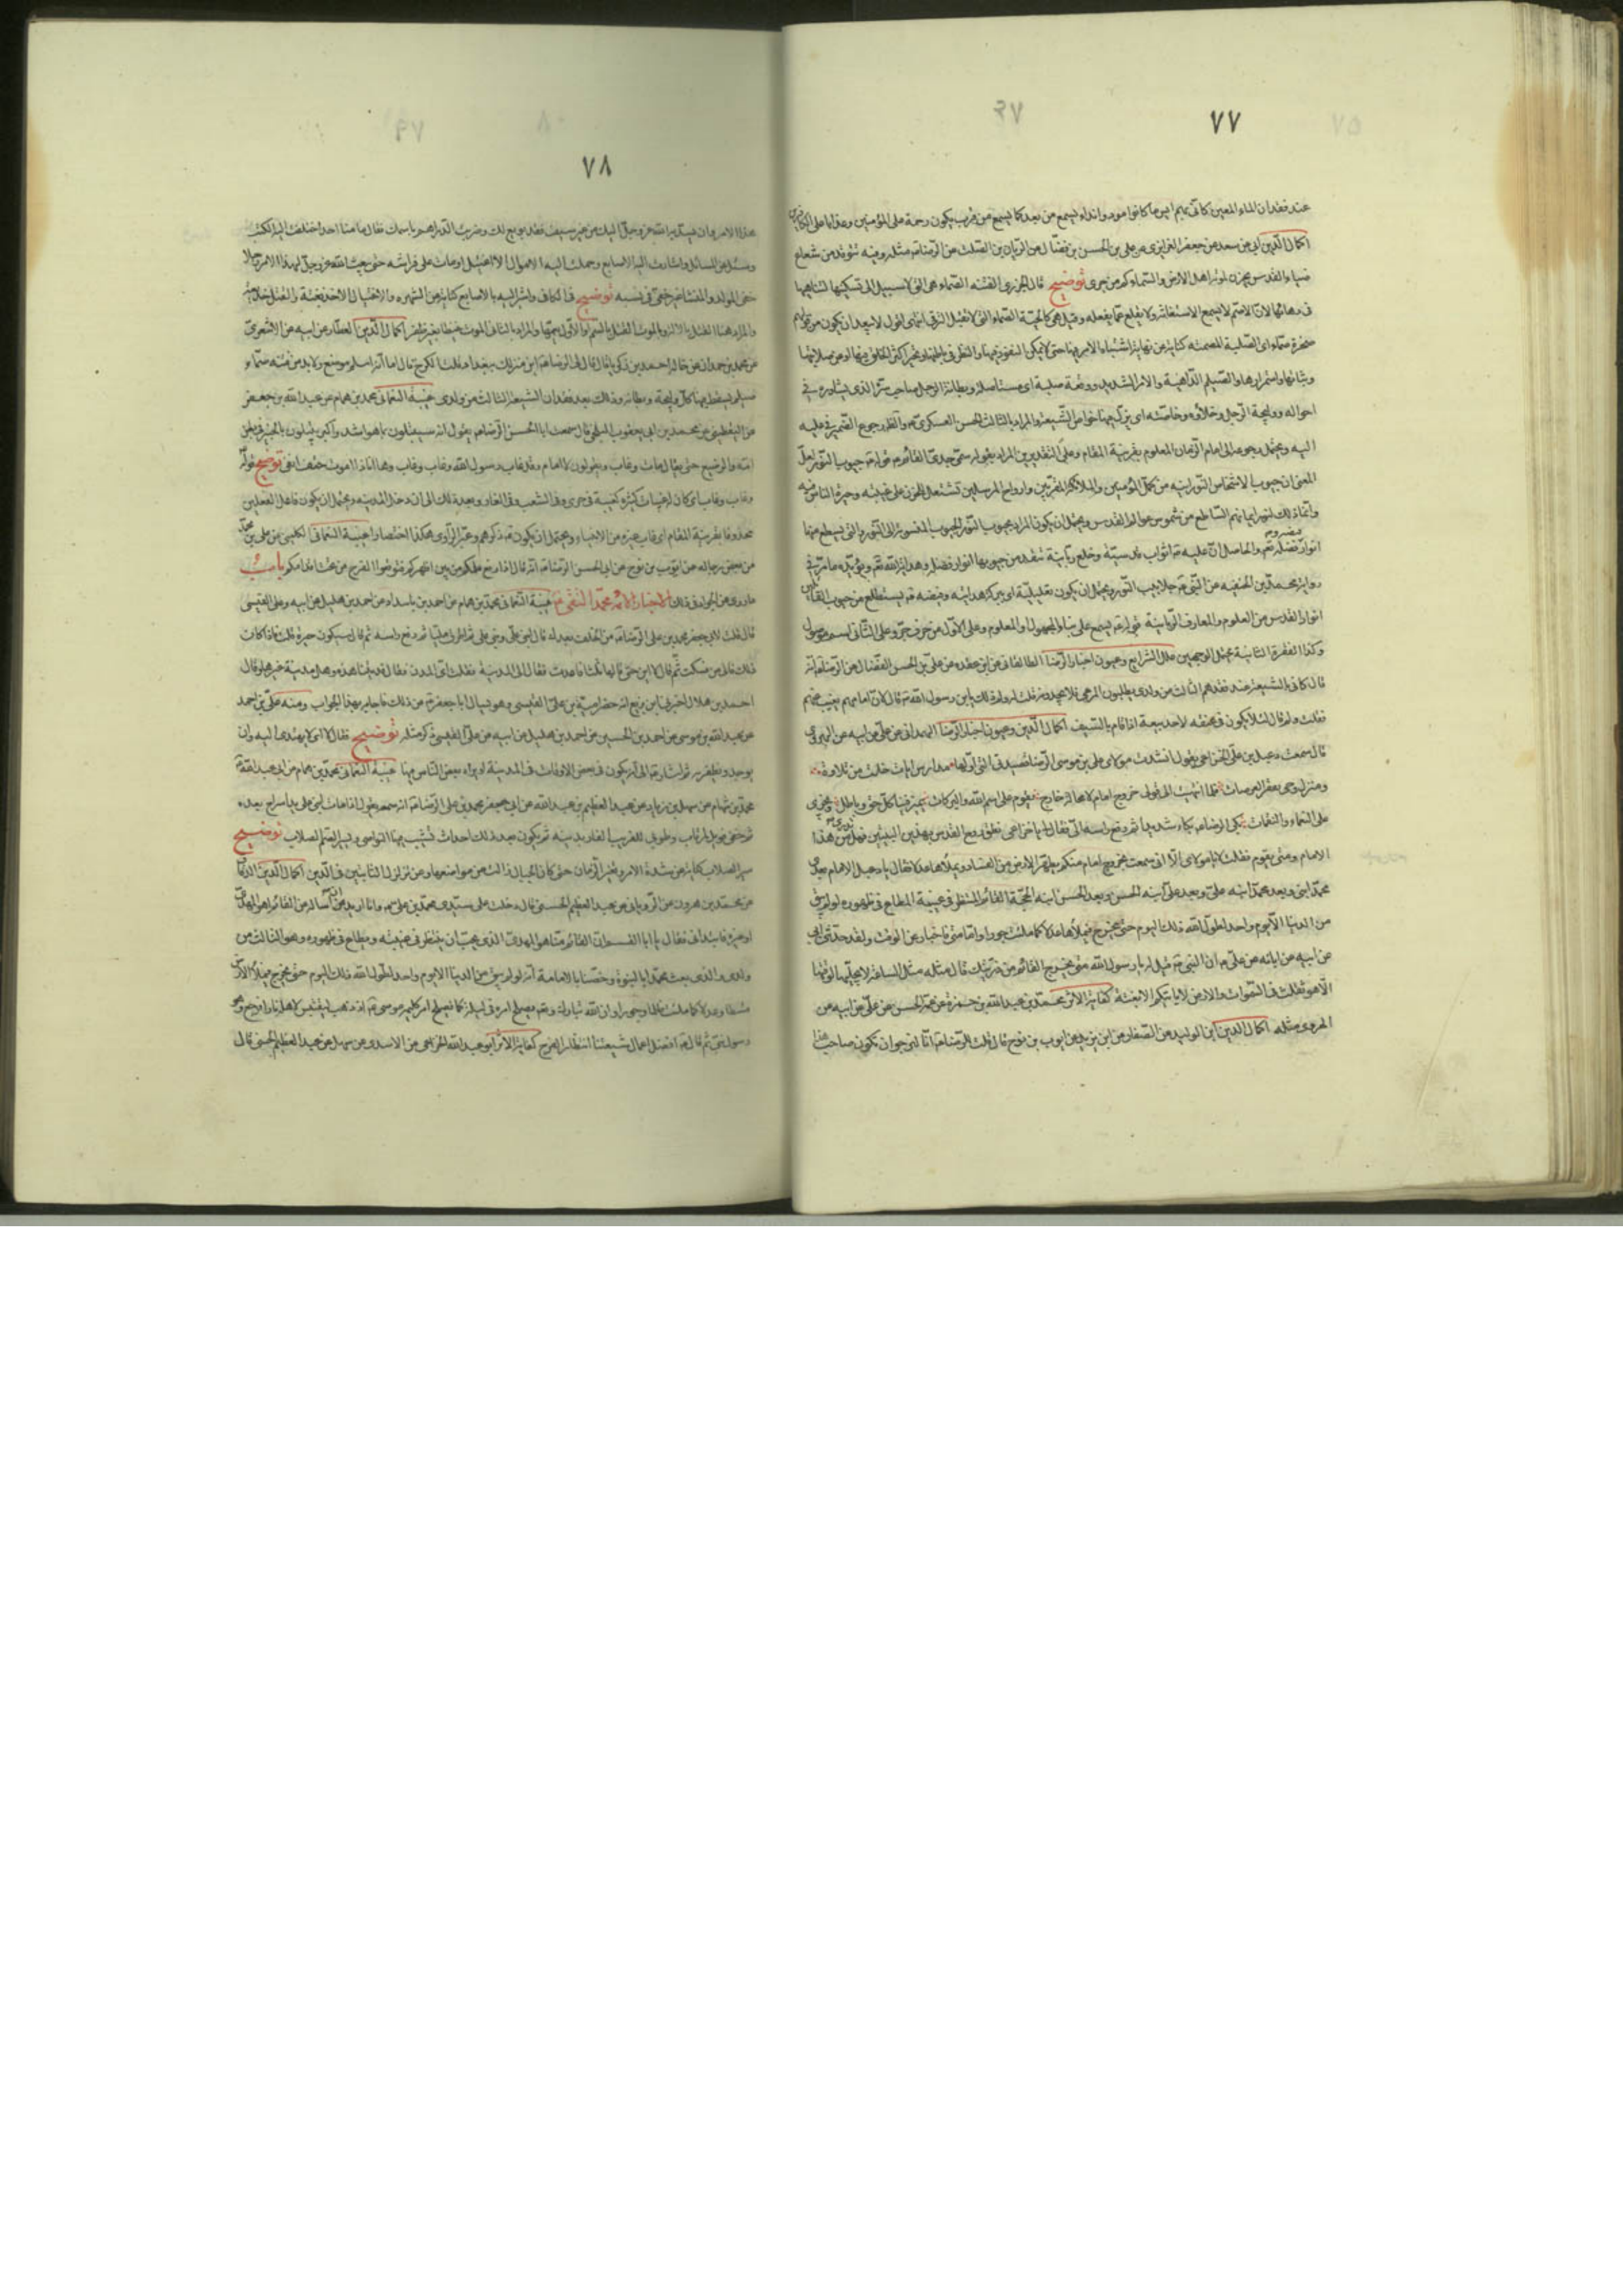 ٧٧
عند فقدان الماء المعين كأني بهم آيس ما كانوا نودوا نداء يسمع من بعد كما يسمع من قرب يكون رحمة على المؤمنين وعذابا على الكافرين
اكمال الدين ابى عن سعد عن جعفر الفزارى عن على بن الحسن بن فضال عن الريان بن الصلت عن الرضا مثله وفيه تتوقد من شعاع
ضياء القدس يحزن لموته اهل الارض والسماء كم من حرى توضيح قال الجزرى الفتنه الصماء هى التى لا سبيل الى تسكينها لتناهيها
فى دهائها لان الاصم لا يسمع الاستغاثة ولا يقلع عما يفعله وقيل هى كالحية الصماء التى لا تقبل الرقى انتهى اقول لا يبعد ان يكون من قولهم
صخرة صماء اى الصلبة المصمتة كناية عن نهاية اشتباه الامر فيها حتى لا يمكن النفوذ فيها والنظر فى باطنها وتحير اكثر الخلق فيها او عن صلابتها
وثباتها واستمرارها والصيلم الداهية والامر الشديد ووقعة صيلمة اى مستاصلة وبطانة الرجل صاحب سره الذى يشاوره فى
احواله ووليجة الرجل دخلاؤه وخاصته اى يزل فيها خواص الشيعة والمراد بالثالث الحسن العسكرى والظاهر رجوع الضمير فى عليه
اليه ويحتمل رجوعه الى امام الزمان المعلوم بقرينة المقام وعلى التقديرين المراد بقوله سمى جدى القائم قوله جيوب النور لعل
المعنى ان جيوب الاشخاص النورانية من كمل المؤمنين والملائكة المقربين وارواح المرسلين تشتعل للحزن على غيبته وحيرة الناس فيه
وانما ذلك لنور ايمانهم الساطع من شموس عوالم القدس ويحتمل ان يكون المراد بجيوب النور الجيوب المنسوبة الى النور والتى يسطع منها
انوار فيضه وفضله تعالى والحاصل ان عليه اثواب قدسية وخلع ربانية تتقد من جيوبها انوار فضله وهدايته تعالى ويؤيده ما مر فى
رواية محمد بن الحنفيه عن النبى جلابيب النور ويحتمل ان يكون تعليلية اى ببركة هدايته وفيضه يسطع من جيوب القابلين
انوار القدس من العلوم والمعارف الربانية قوله يسمع على بناء المجهول او المعلوم وعلى الاول من حرف جر وعلى الثانى اسم موصول
وكذا الفقرة الثانية يحتمل الوجهين علل الشرايع وعيون اخبار الرضا الطالقانى عن ابن عقده عن على بن الحسن الفضال عن الرضا انه
قال كأنى بالشيعة عند فقدهم الثالث من ولدى يطلبون المرعى فلا يجدونه قلت له ولم ذلك يا بن رسول الله قال لان امامهم يغيب عنهم
فقلت ولم قال لئلا يكون فى عنقه لاحد بيعة اذا قام بالسيف اكمال الدين وعيون اخبار الرضا الهمدانى عن على عن ابيه عن الهروى
قال سمعت دعبل بن على الخزاعى يقول انشدت مولاى على بن موسى الرضا قصيدتى التى اولها مدارس ايات خلت من تلاوة
ومنزل وحى مقفر العرصات فلما انتهيت الى قولى خروج امام لا محالة خارج يقوم على اسم الله والبركات يميز فينا كل حق وباطل ويجزى
على النعماء والنقمات بكى الرضا بكاء شديدا ثم رفع راسه الى فقال لى يا خزاعى نطق روح القدس بهذين البيتين فهل تدرى من هذا
الامام ومتى يقوم فقلت لا يا مولاى الا انى سمعت بخروج امام منكم يطهر الارض من الفساد ويملأها عدلا فقال يا دعبل الامام بعدى
محمد ابنى وبعد محمد ابنه على وبعد على ابنه الحسن وبعد الحسن ابنه الحجة القائم المنتظر فى غيبته المطاع فى ظهوره لو لم يبق
من الدنيا الا يوم واحد لطول الله ذلك اليوم حتى يخرج فيملأها عدلا كما ملئت جورا واما متى فاخبار عن الوقت ولقد حدثنى ابى
عن ابيه عن ابائه عن على ان النبى قيل له يا رسول الله متى يخرج القائم من ذريتك قال مثله مثل الساعة لا يجليها لوقتها
الا هو ثقلت فى السموات والارض لا ياتيكم الا بغتة كفاية الاثر محمد بن عبد الله بن حمزة عن عمه الحسن عن على عن ابيه عن
الهروى مثله اكمال الدين ابن الوليد عن الصفار عن ابن يزيد عن ايوب بن نوح قال قلت للرضا انا لنرجو ان تكون صاحب هذا
٧٨
هذا الامر وان يسديه الله عز وجل اليك من غير سيف فقد بويع لك وضربت الدراهم باسمك فقال ما منا احد اختلفت اليه الكتب
وسئل عن المسائل واشارت اليه الاصابع وحملت اليه الاموال الا اغتيل او مات على فراشه حتى يبعث الله عز وجل لهذا الامر رجلا
خفى المولد والمنشأ غير خفى فى نسبه توضيح فى الكافى واشير اليه بالاصابع كناية عن الشهره والاغتيال الاخذ بغتة والقتل خديعة
والمراد هنا القتل بالالة وبالموت القتل بالسم او الاول يعمها والمراد بالثانى الموت غيظا بغير ظفر اكمال الدين العطار عن ابيه عن الاشعرى
عن محمد بن حمدان عن خاله احمد بن زكريا قال قال لى الرضا اين منزلك ببغداد قلت الكرخ قال اما انه اسلم موضع ولا بد من فتنه صماء
صيلم يسقط فيها كل وليجة وبطانه وذلك بعد فقدان الشيعة الثالث من ولدى غيبة النعمانى محمد بن همام عن عبد الله بن جعفر
عن اليقطينى عن محمد بن ابى يعقوب البلخى قال سمعت ابا الحسن الرضا يقول انه سيبتلون بما هو اشد واكبر يبتلون بالجنين فى بطن
امه والرضيع حتى يقال مات وغاب ويقولون لا امام وقد غاب رسول الله وغاب وغاب وها انا ذا اموت حتف انفى توضيح قوله
وغاب وغاب اى كان له غيبات كثيرة كغيبته فى حرى وفى الشعب وفى الغار وبعد ذلك الى ان دخل المدينه ويحتمل ان يكون فاعل الفعلين
محذوفا بقرينة المقام اى غاب غيره من الانبياء ويحتمل ان يكون ذكرهم وعبر الراوى هكذا اختصارا غيبة النعمانى الكلينى عن على بن محمد
عن بعض رجاله عن ايوب بن نوح عن ابى الحسن الرضا انه قال اذا رفع علمكم من بين اظهركم فتوقعوا الفرج من تحت اقدامكم باب
ما روى عن الجواد فى ذلك غيبة النعمانى محمد بن همام عن احمد بن مابنداد عن احمد بن هليل عن امية بن على القيسى
قال قلت لابى جعفر محمد بن على الرضا من الخلف بعدك قال ابنى على وبنى على ثم اطرق مليا ثم رفع راسه ثم قال سيكون حيرة قلت فاذا كانت
ذلك فالى من فسكت ثم قال لا اين حتى قالها ثلثا فاعدت فقال الى المدينة فقلت اى المدن فقال مدينتنا هذه وهل مدينة غيرها وقال
احمد بن هلال اخبرنى ابن بزيع انه حضر امية بن على القيسى وهو يسال ابا جعفر عن ذلك فاجابه بهذا الجواب ومنه على بن احمد
عن عبيد الله بن موسى عن احمد بن الحسين عن احمد بن هليل عن امية بن على القيسى وذكر مثله توضيح فقال لا اين اى لا يهتدى اليه واين
يوجد ويظفر به ثم اشار الى انه يكون فى بعض الاوقات فى المدينة او يراه بعض الناس فيها غيبة النعمانى محمد بن همام عن ابى عبد الله
محمد بن عصام عن سهل بن زياد عن عبد العظيم بن عبد الله عن ابى جعفر محمد بن على الرضا انه سمعه يقول اذا مات ابنى على بدا سراج بعده
ثم خفى فويل للمرتاب وطوبى للغريب الفار بدينه ثم يكون بعد ذلك احداث تشيب فيها النواصى ويسير الصم الصلاب توضيح
سير الصلاب كناية عن شدة الامر وتغير الزمان حتى كأن الجبال زالت عن مواضعها وعن تزلزل الثابتين فى الدين اكمال الدين الدقاق
عن محمد بن هرون عن الرويانى عن عبد العظيم الحسنى قال دخلت على سيدى محمد بن على وانا اريد ان اساله عن القائم اهو المهدى
او غيره فابتدأنى فقال يا ابا القسم ان القائم منا هو المهدى الذى يجب ان ينتظر فى غيبته ويطاع فى ظهوره وهو الثالث من
ولدى والذى بعث محمدا بالنبوة وخصنا بالامامة انه لو لم يبق من الدنيا الا يوم واحد لطول الله ذلك اليوم حتى يخرج فيملأ الارض
قسطا وعدلا كما ملئت ظلما وجورا وان الله تبارك وتعالى يصلح امره فى ليلة كما اصلح امر كليمه موسى اذ ذهب ليقتبس لاهله نارا فرجع وهو
رسول نبى ثم قال افضل اعمال شيعتنا انتظار الفرج كفاية الاثر ابو عبد الله الخزاعى عن الاسدى عن سهل عن عبد العظيم الحسنى قال